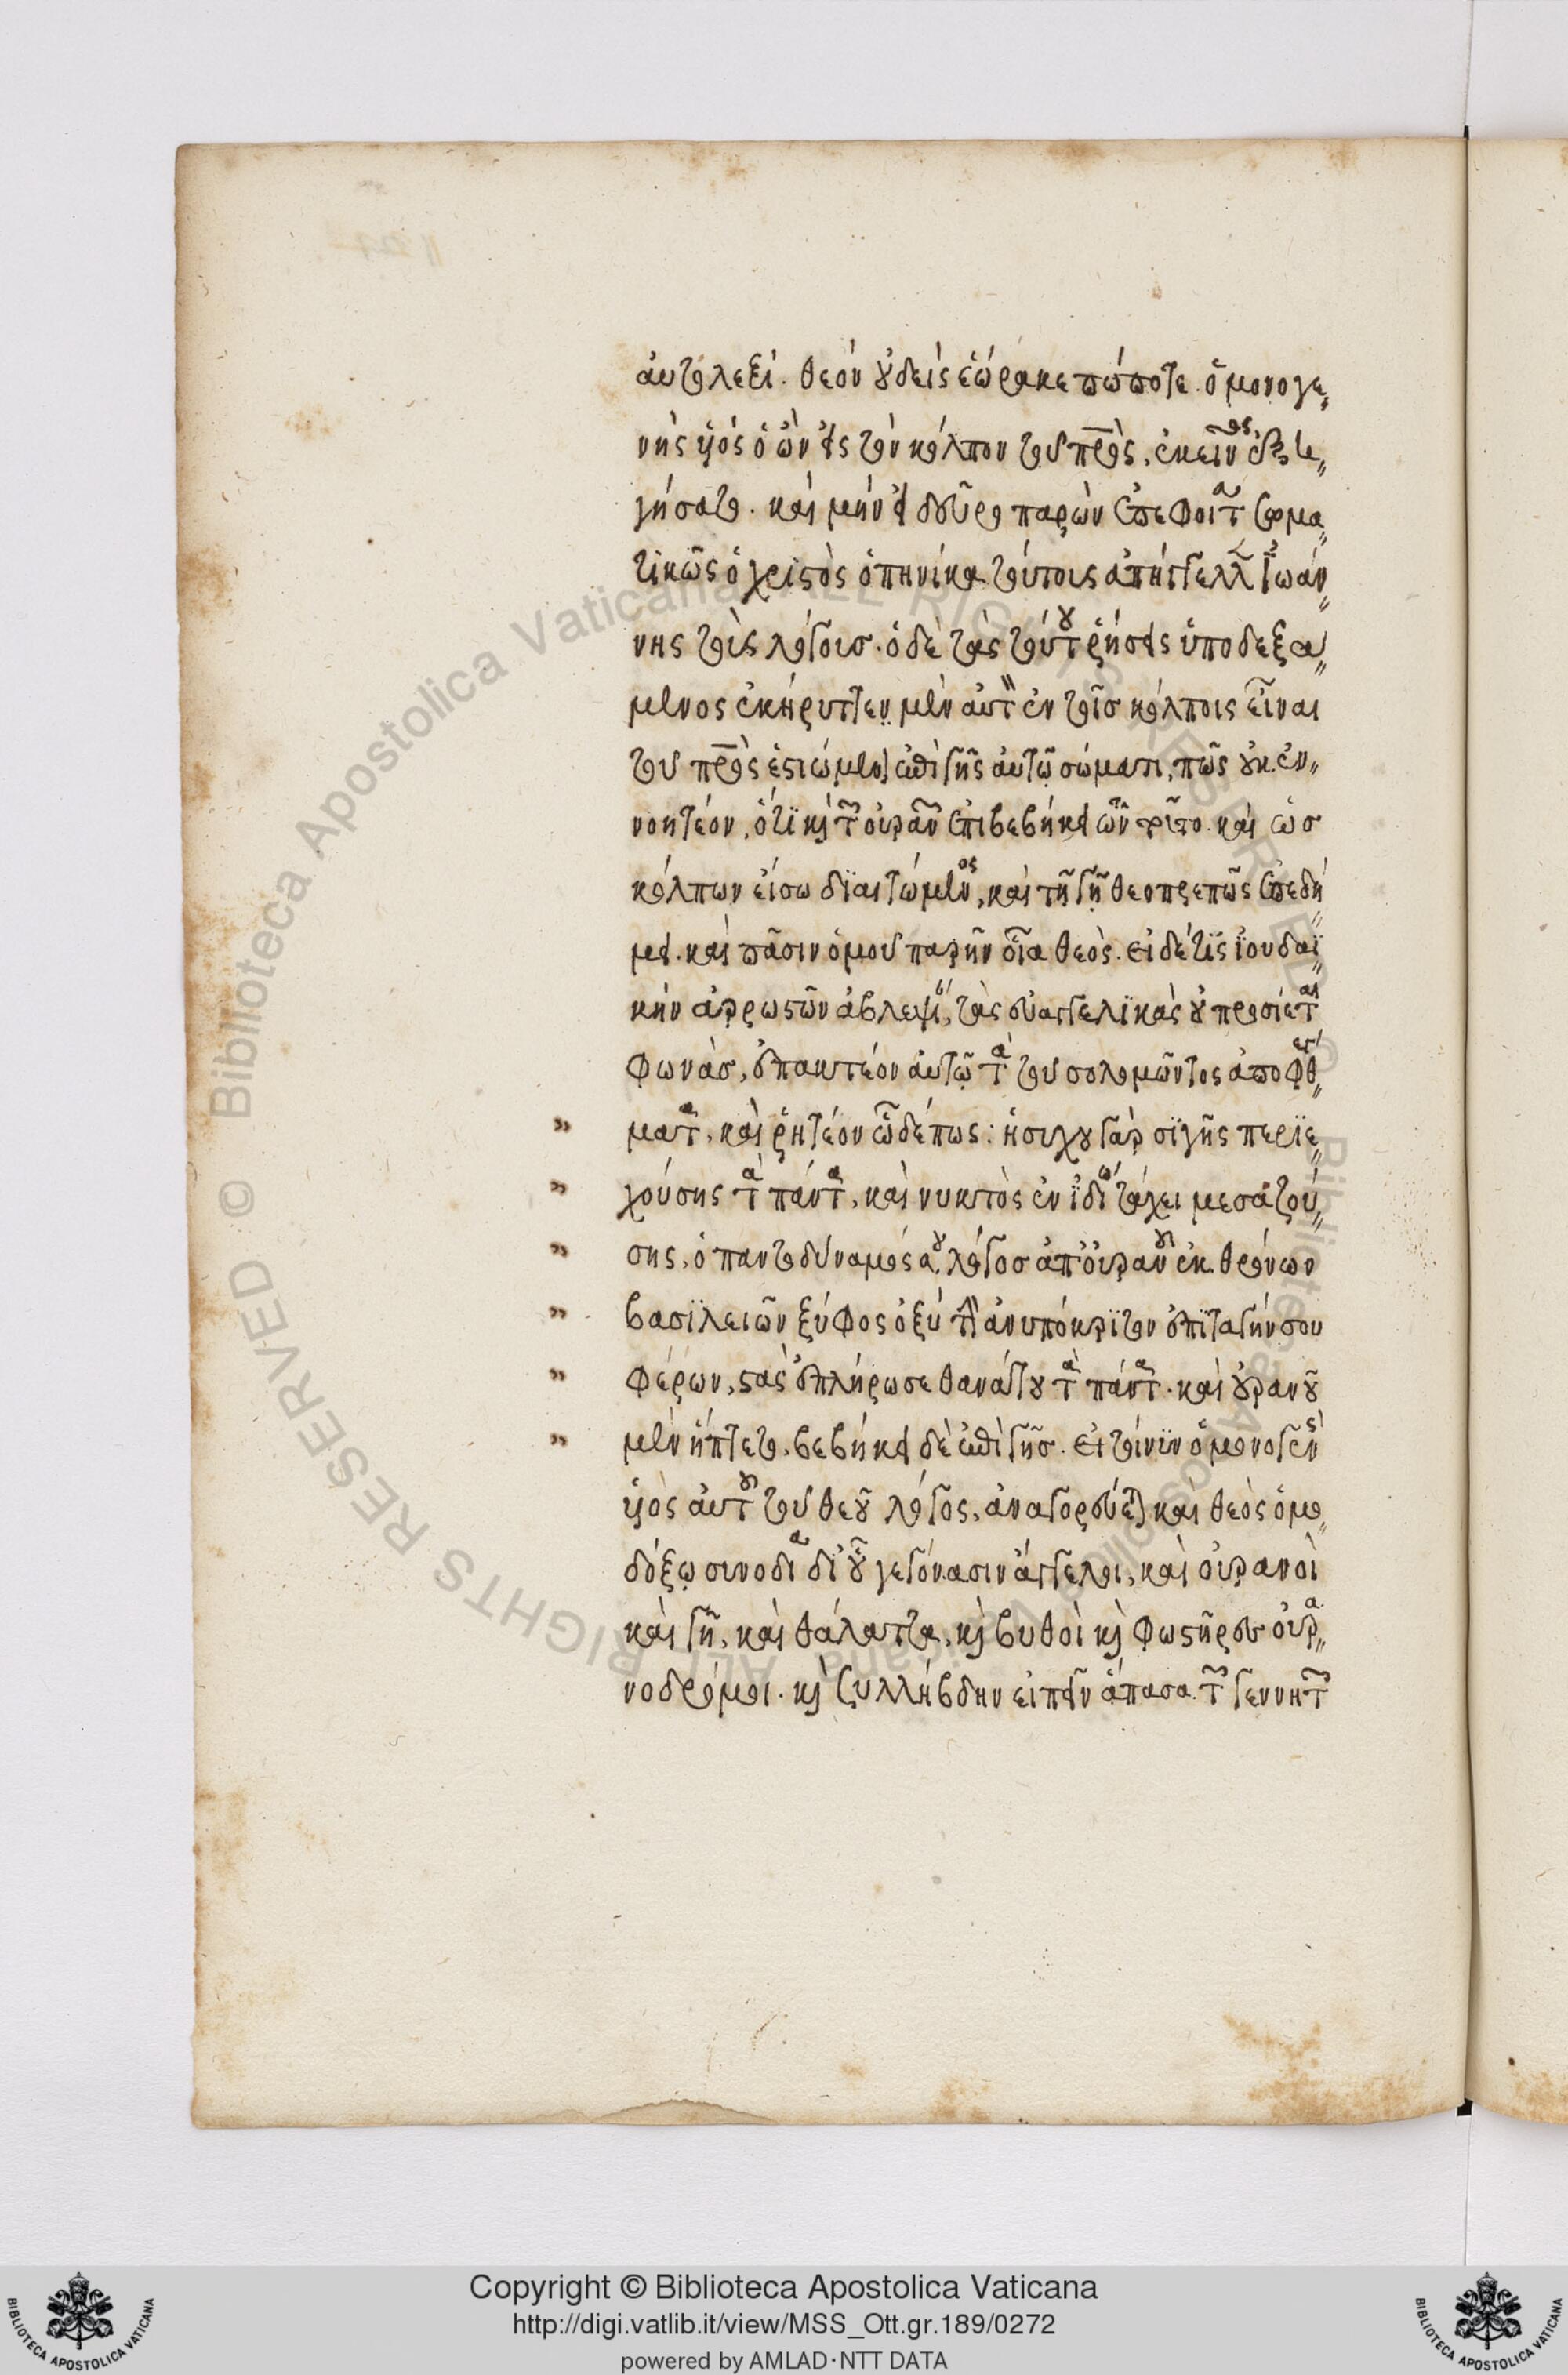 αὐτολεξί. θεὸν οὐδεὶς ἑώρακε πώποτε. ὁ μονογε
νὴς υἱός ὁ ὢν εἰς τὸν κόλπον τοῦ πρὸς, ἐκεῖνος ἐξη
γήσατο. καὶ μὴν εἰ δεῦρο παρὼν ἐπεφοίτα σωμα
τικῶς ὁ χριστὸς ὁπηνίκα τούτοις ἀπήγγελλεν Ἰωάν
νης τοῖς λόγοισ. ὁ δὲ τὰς τούτου ῥήσεις ὑποδεξά
μενος ἐκήρυττεν μὲν αὐτὸν ἐν τοῖσ κόλποις εἶναι
τοῦ πρὸς ἑστιώμενον ἐπὶ γῆς αὐτῷ σώματι, πῶς οὐκ ἐν
νοητέον, ὅτι καὶ τῶν οὐρανῶν ἐπιβεβήκει ὧν τοῖτο. καὶ ὡσ
κόλπων εἴσω διαιτώμενος, καὶ τῇ γῇ θεοπρεπῶς ἐπεδή
μει. καὶ πᾶσιν ὁμοῦ παρῆν οἷα θεὸς. εἰ δέ τις ἰουδαϊ
κὴν ἀρρωστῶν ἀβλεψίαν, τὰς εὐαγγελικὰς οὐ προσίεται
φωνὰσ, ἐπακτέον αὐτῷ τὰ τοῦ σολομῶντος ἀποφθέγ
ματα, καὶ ῥητέον ὧδέ πως: ἡσύχου γὰρ σιγῆς περιε
χούσης τὰ πάντα, καὶ νυκτὸς ἐν ἰδίω τάχει μεσαζού
σης, ὁ παντοδύναμός σου λόγοσ ἀπ' οὐρανοῦ ἐκ θρόνων
βασιλειῶν ξύφος ὀξύ τὴν ἀνυπόκριτον ἐπιταγήν σου
φέρων, στὰς ἐπλήρωσε θανάτου τὰ πάντα. καὶ οὐρανοῦ
μὲν ἥπτετο, βεβήκει δὲ ἐπὶ γῆσ. εἰ τοίνυν ὁ μονογενὴς
υἱὸς αὐτοῦ τοῦ θεοῦ λόγος, ἀναγορεύεται καὶ θεὸς ὁμο
δόξω συνοδία δι' οὗ γεγόνασιν ἄγγελοι, καὶ οὐρανοὶ
καὶ γῆ, καὶ θάλαττα, καὶ βυθοὶ καὶ φωστῆρσ οὐρα
νοδρόμοι. καὶ ξυλλήβδην εἰπεῖν ἅπασα τῶν γεννητῶν
Copyright © Biblioteca Apostolica Vaticana
http://digi.vatlib.it/view/MSS_Ott.gr.189/0272
powered by AMLAD·NTT DATA